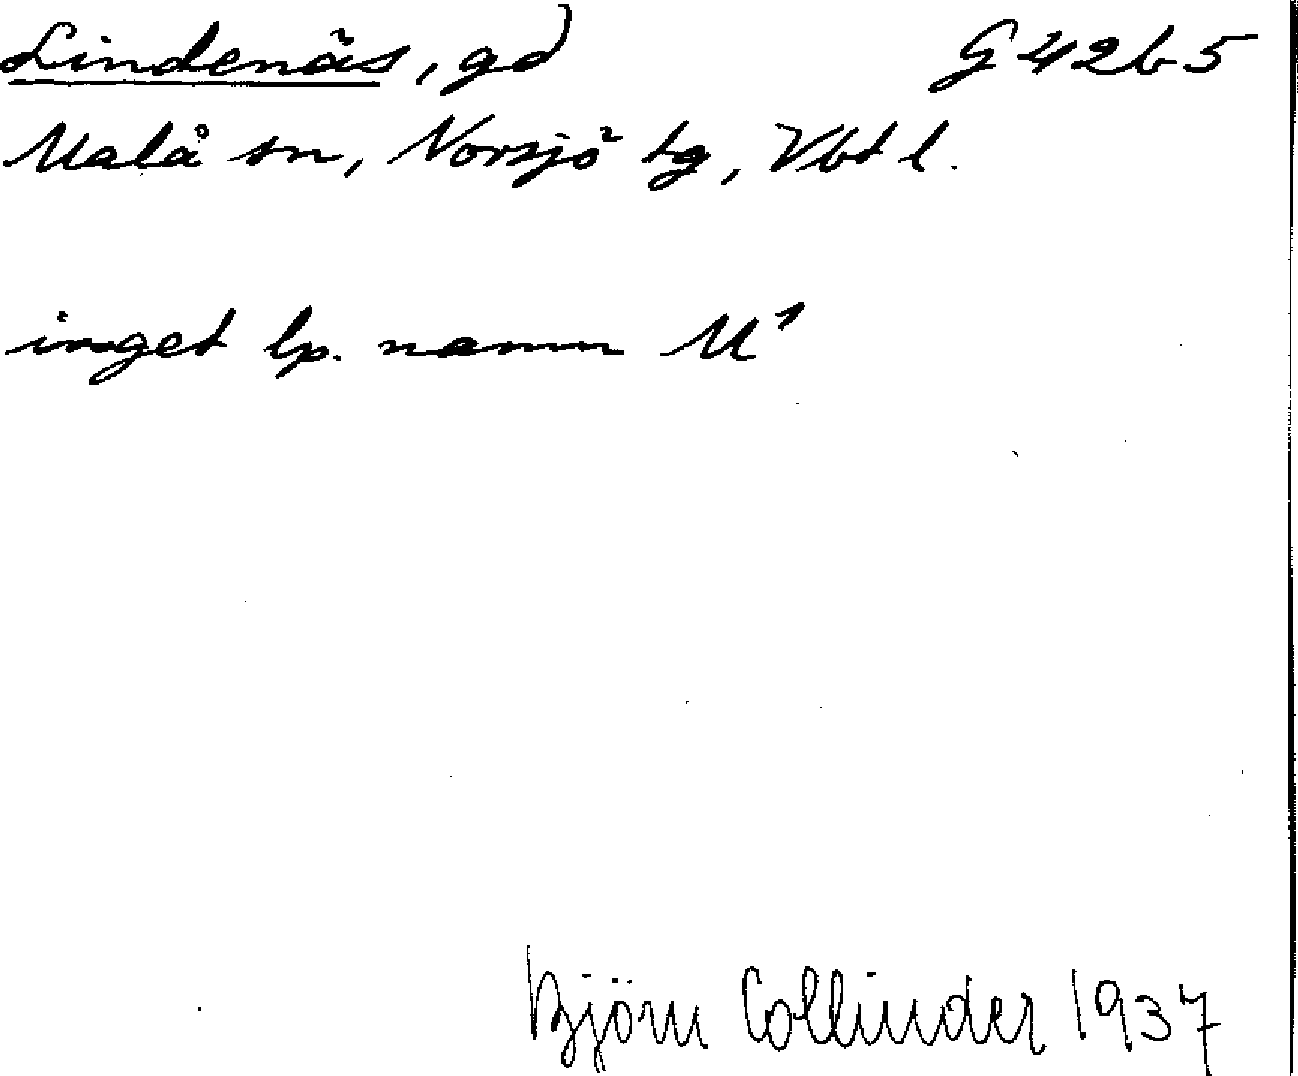 Lindenäs, gd G 42 b 5
Malå sn, Norsjö tg, Vbt l.
inget lp. namn M¹
Björn Collinder 1937